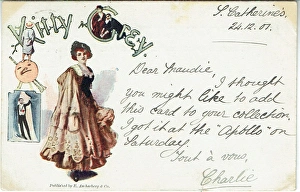 Kitty Grey.
S. Catherine's
24.12.01.
Dear Maudie
I thought
you might like to add
this card to your collection.
I got it at the "Apollo" on
Saturday.
Tout à vous,
Charlie
Published by E. Ascherberg & Co.